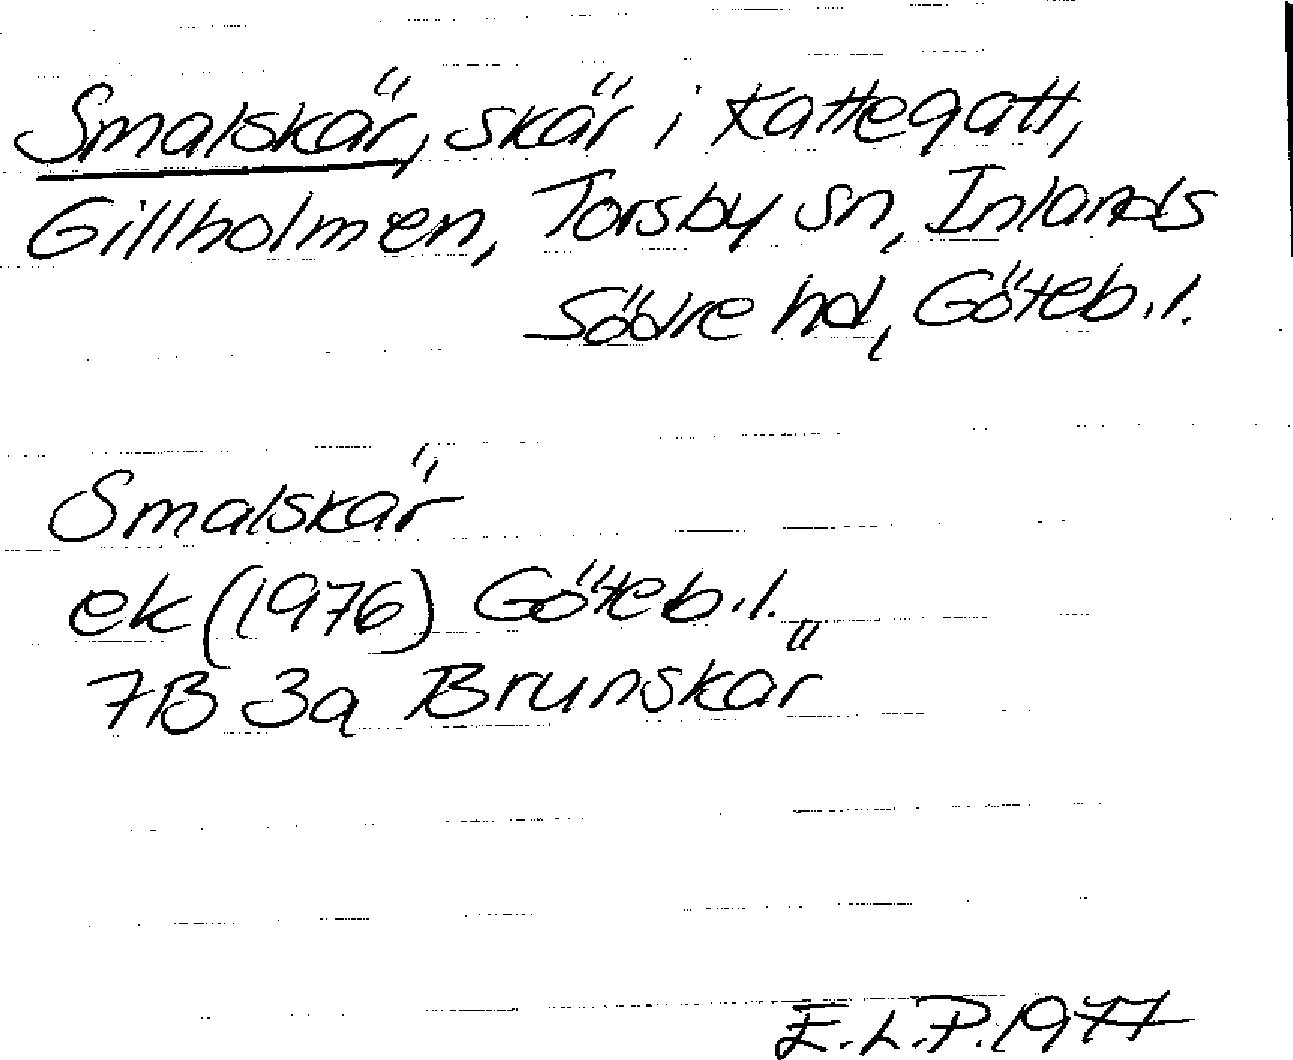 Smalskär, skär i Kattegatt,
Gillholmen, Torsby sn, Inlands
Södre hd, Göteb.l.
Smalskär
ek (1976) Göteb.l.
7B 3a Brunskär
E.L.P. 1977